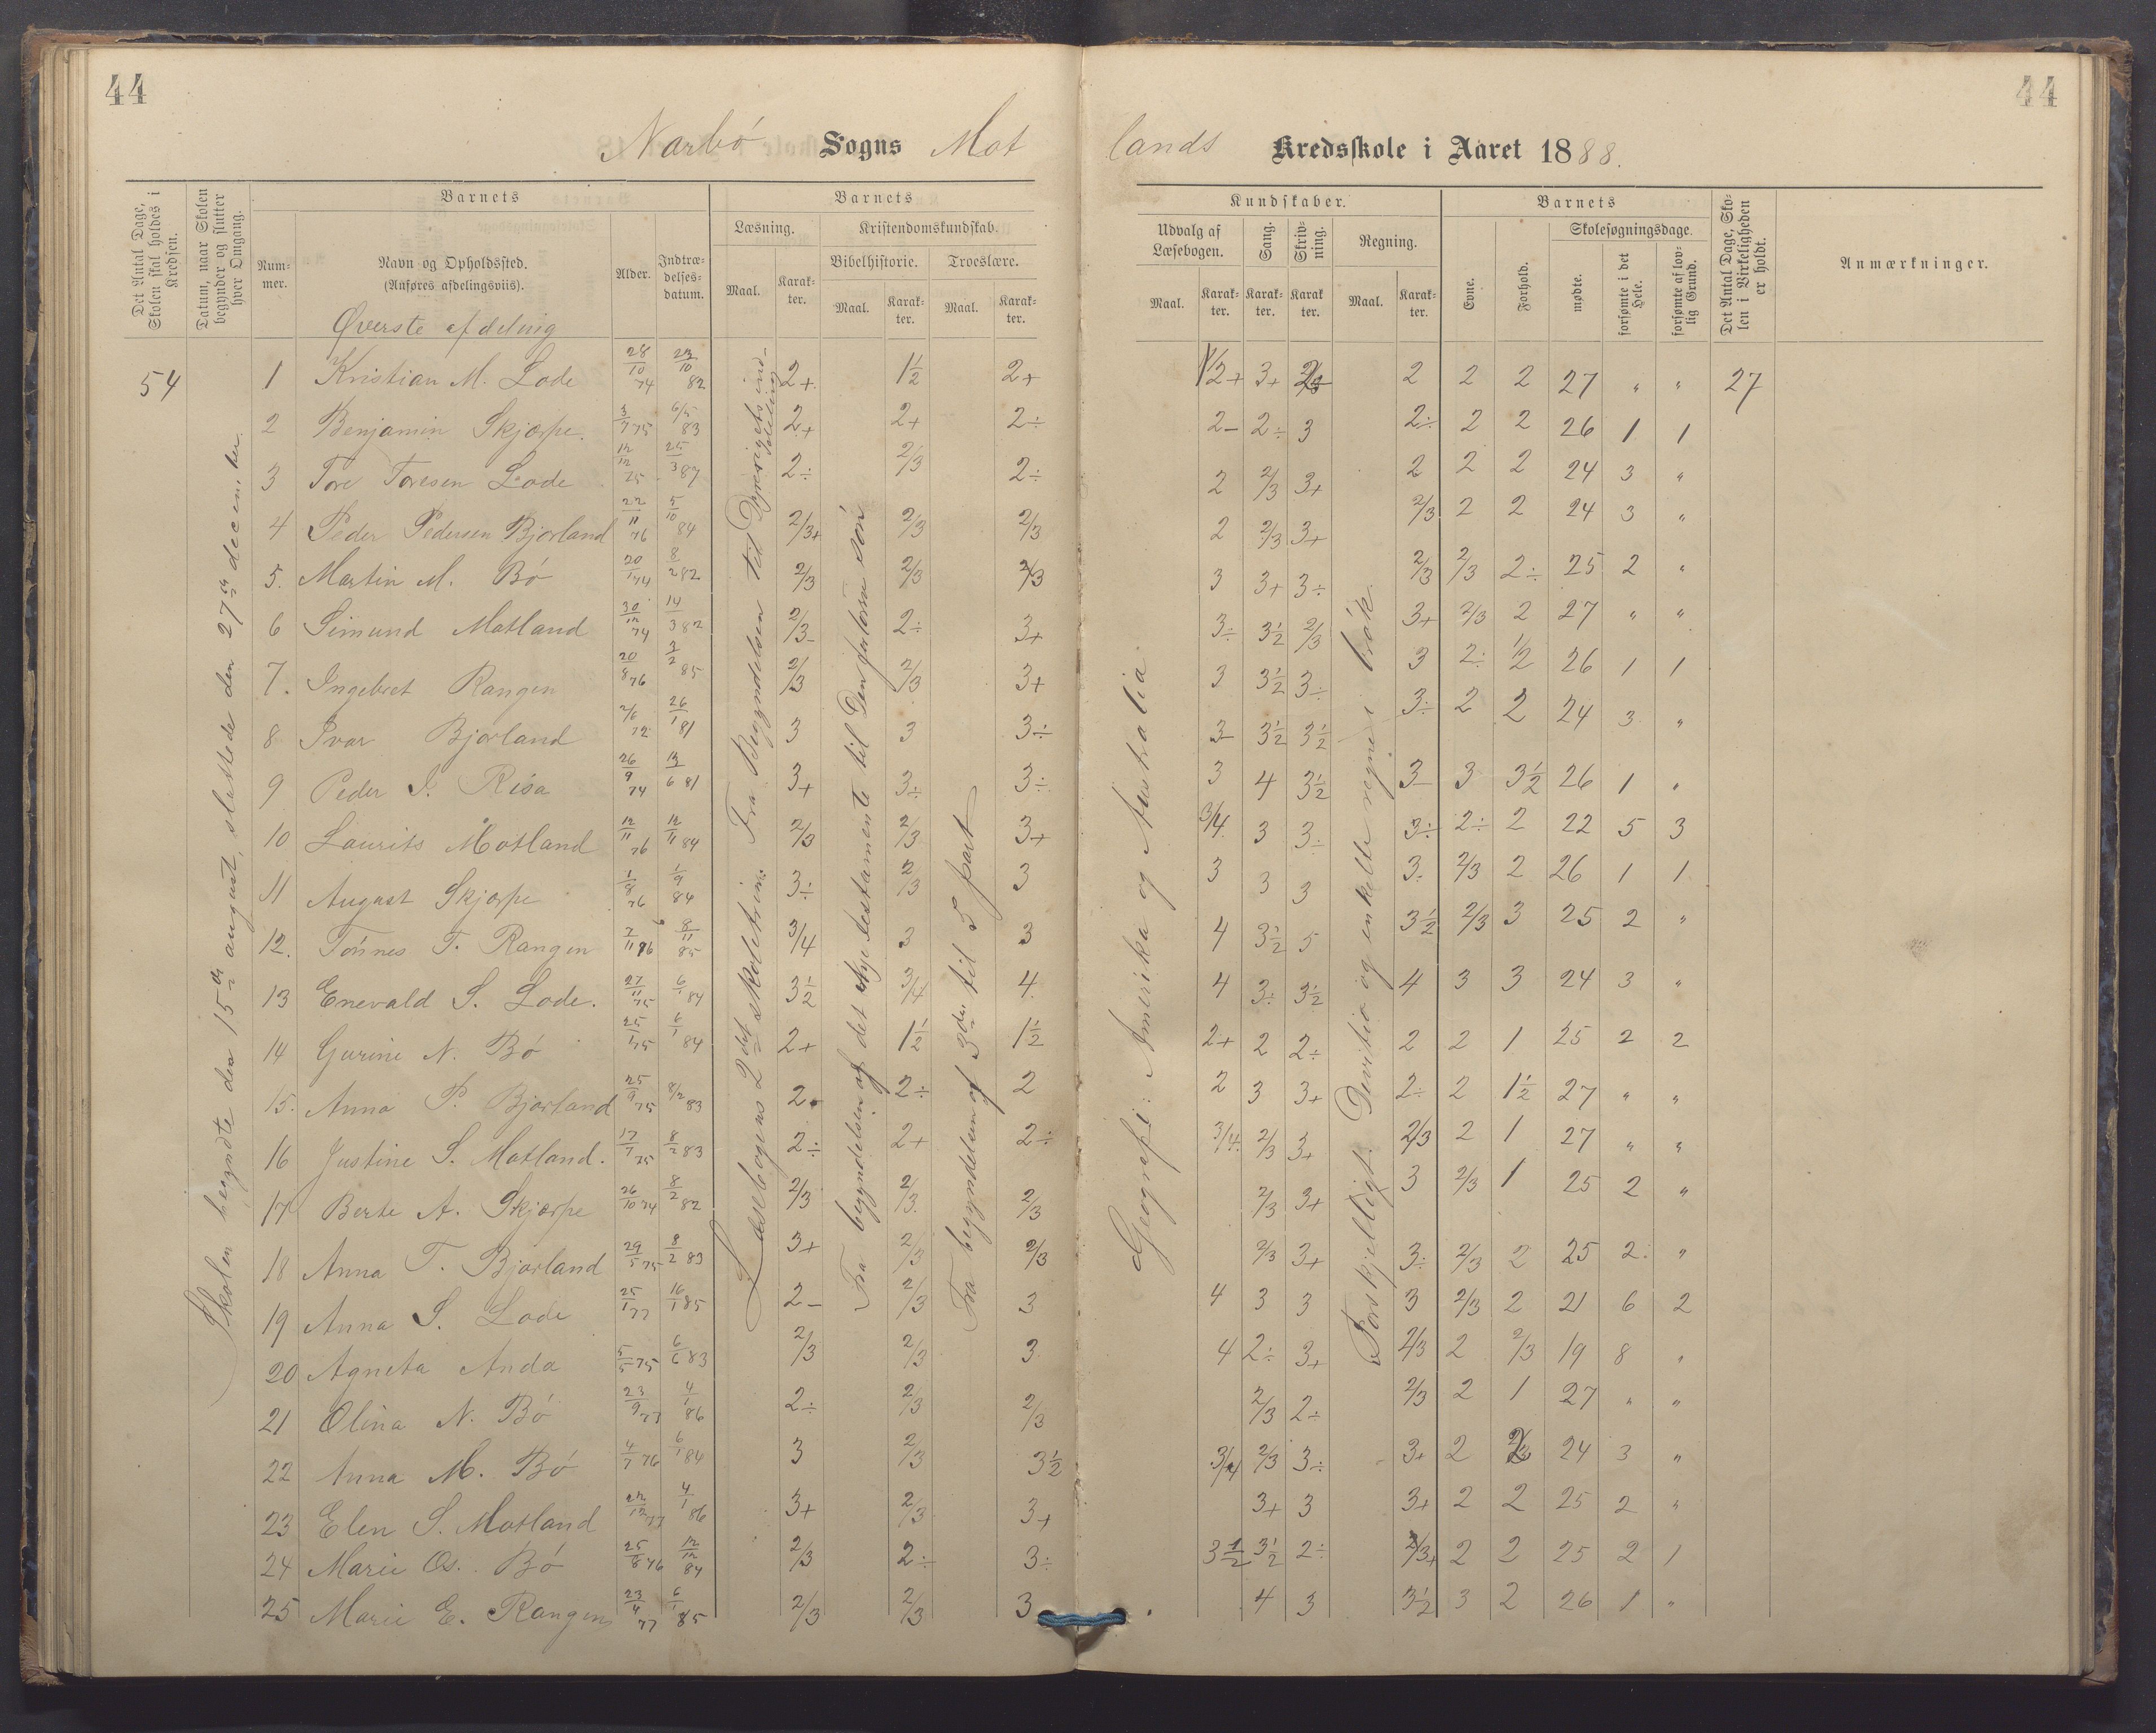 44
44
Narbó Sogns Mot
lands Kredsskole i Aaret 1888.
Det Antal Dage, Skolen skal holdes i Kredsen.
Datum, naar Skolen begynder og slutter hver Omgang.
Barnets
Num-mer.
Navn og Opholdssted.
(Anføres afdelingsviis).
Alder.
Indtræ-delses-datum.
Barnets
Læsning.
Maal.
Karak-ter.
Kristendomskundskab.
Bibelhistorie.
Maal.
Karak-ter.
Troeslære.
Maal.
Karak-ter.
Kundskaber.
Udvalg af Læsebogen.
Maal.
Karak-ter.
Sang.
Karak-ter.
Skriv-ning.
Karak ter.
Regning.
Maal.
Karak-ter.
Barnets
Evne.
Forhold.
Skolesøgningsdage.
mødte.
forsømte i det Hele.
forsømte af lov-lig Grund.
Det Antal Dage, Sko-len i Virkeligheden er holdt.
Anmærkninger.
Øverste afdeling
54
Skolen begyndte den 15de august, sluttede den 27de december.
Læsebogens 2det skoletrin: Fra Begyndelsen til Dyrerigets inddeling
Fra begyndelsen af det nye testamente til Den fortorne són
Fra begyndelsen af 3die til 5 part
Geografi: Amerika og Australia
Forskjelligt. Divitio og enkelte regne i brók.
1 Kristian M. Lode 28/10 74 23/10 82 2+ 1½ 2+ 1/2+ 3+ 2/3 2 2 2 27 " " 27
2 Benjamin Skjærpe. 3/7 75 6/5 83 2+ 2+ 2÷ 2- 2÷ 3 2÷ 2 2 26 1 1
3 Tore Toresen Lode 12/12 75 25/3 87 2÷ 2/3 2÷ 2 2/3 3+ 2 2 2 24 3 "
4 Peder Pedersen Bjorland 22/11 76 5/10 84 2/3+ 2/3 2/3 2 2/3 3+ 2/3 2 2 24 3 "
5. Martin M. Bó 20/1 74 8/2 82 2/3 2/3 2/3 3 3+ 3÷ 2/3 2/3 2÷ 25 2 "
6 Simund Motland 30/12 74 14/3 82 2/3- 2÷ 3+ 3÷ 3½ 2/3 3+ 2/3 2 27 " "
7. Ingebret Rangen 20/8 76 3/2 85 2/3 2/3 3+ 3 3½ 3÷ 3 2÷ 1/2 26 1 1
8 Ivar Bjorland 2/6 72 26/1 81 3 3 3÷ 3- 3½ 3½ 3÷ 2 2 24 3 "
9 Peder I. Risa 26/9 74 13/6 81 3+ 3÷ 3÷ 3 4 3½ 3- 3 3½ 26 1 "
10 Laurits Motland 12/11 76 12/11 84 2/3 2/3 3+ 3/4 3 3÷ 3÷ 2÷ 2 22 5 3
11 August Skjærpe 1/8 76 1/9 84 3÷ 2/3 3 3 3 3 3÷ 2/3 2 26 1 1
12. Tónnes T. Rangen 2/11 76 8/11 85 3/4 3 3 4 3½ 5 3½ 2/3 3 25 2 "
13 Enevald S. Lode. 27/11 75 6/1 84 3½ 3/4 4 4 3÷ 3½ 4 3 3 24 3 "
14 Gurine N. Bó 25/1 75 6/1 84 2+ 1½ 1½ 2+ 2 2÷ 2 2 1 25 2 2
15. Anna P. Bjorland 25/9 75 8/2 83 2 2÷ 2 2 3 3+ 2÷ 2 1½ 27 " "
16 Justine S. Motland. 17/7 75 8/2 83 2÷ 2+ 2÷ 3/4 2/3 3+ 2/3 2 1 27 " "
17 Berte A. Skjærpe 26/10 74 8/2 82 2/3 2/3 2/3 2/3 3+ 3 2/3 1 25 2 "
18 Anna T. Bjorland 29/5 75 8/2 83 3+ 2/3 2/3 2/3 3+ 3÷ 2/3 2 25 2 "
19 Anna S. Lode 25/1 77 16/1 85 2- 2/3 3 4 3 3 3 2/3 2 21 6 2
20 Agneta Anda 5/5 75 6/6 83 2/3 2/3 3 4 2÷ 3+ 2/3 2 2/3 19 8 "
21 Olina N. Bó 23/9 77 4/1 86 2÷ 2/3 2/3 2/3 2÷ 2/3 2 1 27 " "
22 Anna M. Bó 4/7 76 6/1 84 3 2/3 3½ 3/4 2/3 3÷ 3+ 2 24 3 "
23 Elen S. Motland 22/12 77 4/1 86 3+ 2/3 3+ 3+ 3 3+ 2 2 25 2 "
24 Marie Os. Bó 25/8 76 12/12 84 2/3 2÷ 3÷ 3½ 3½ 2÷ 2/3+ 2 2 25 2 1
25 Marie E. Rangen 23/4 77 6/1 85 2/3 2/3 3 4 3 3½ 3 2 26 1 "